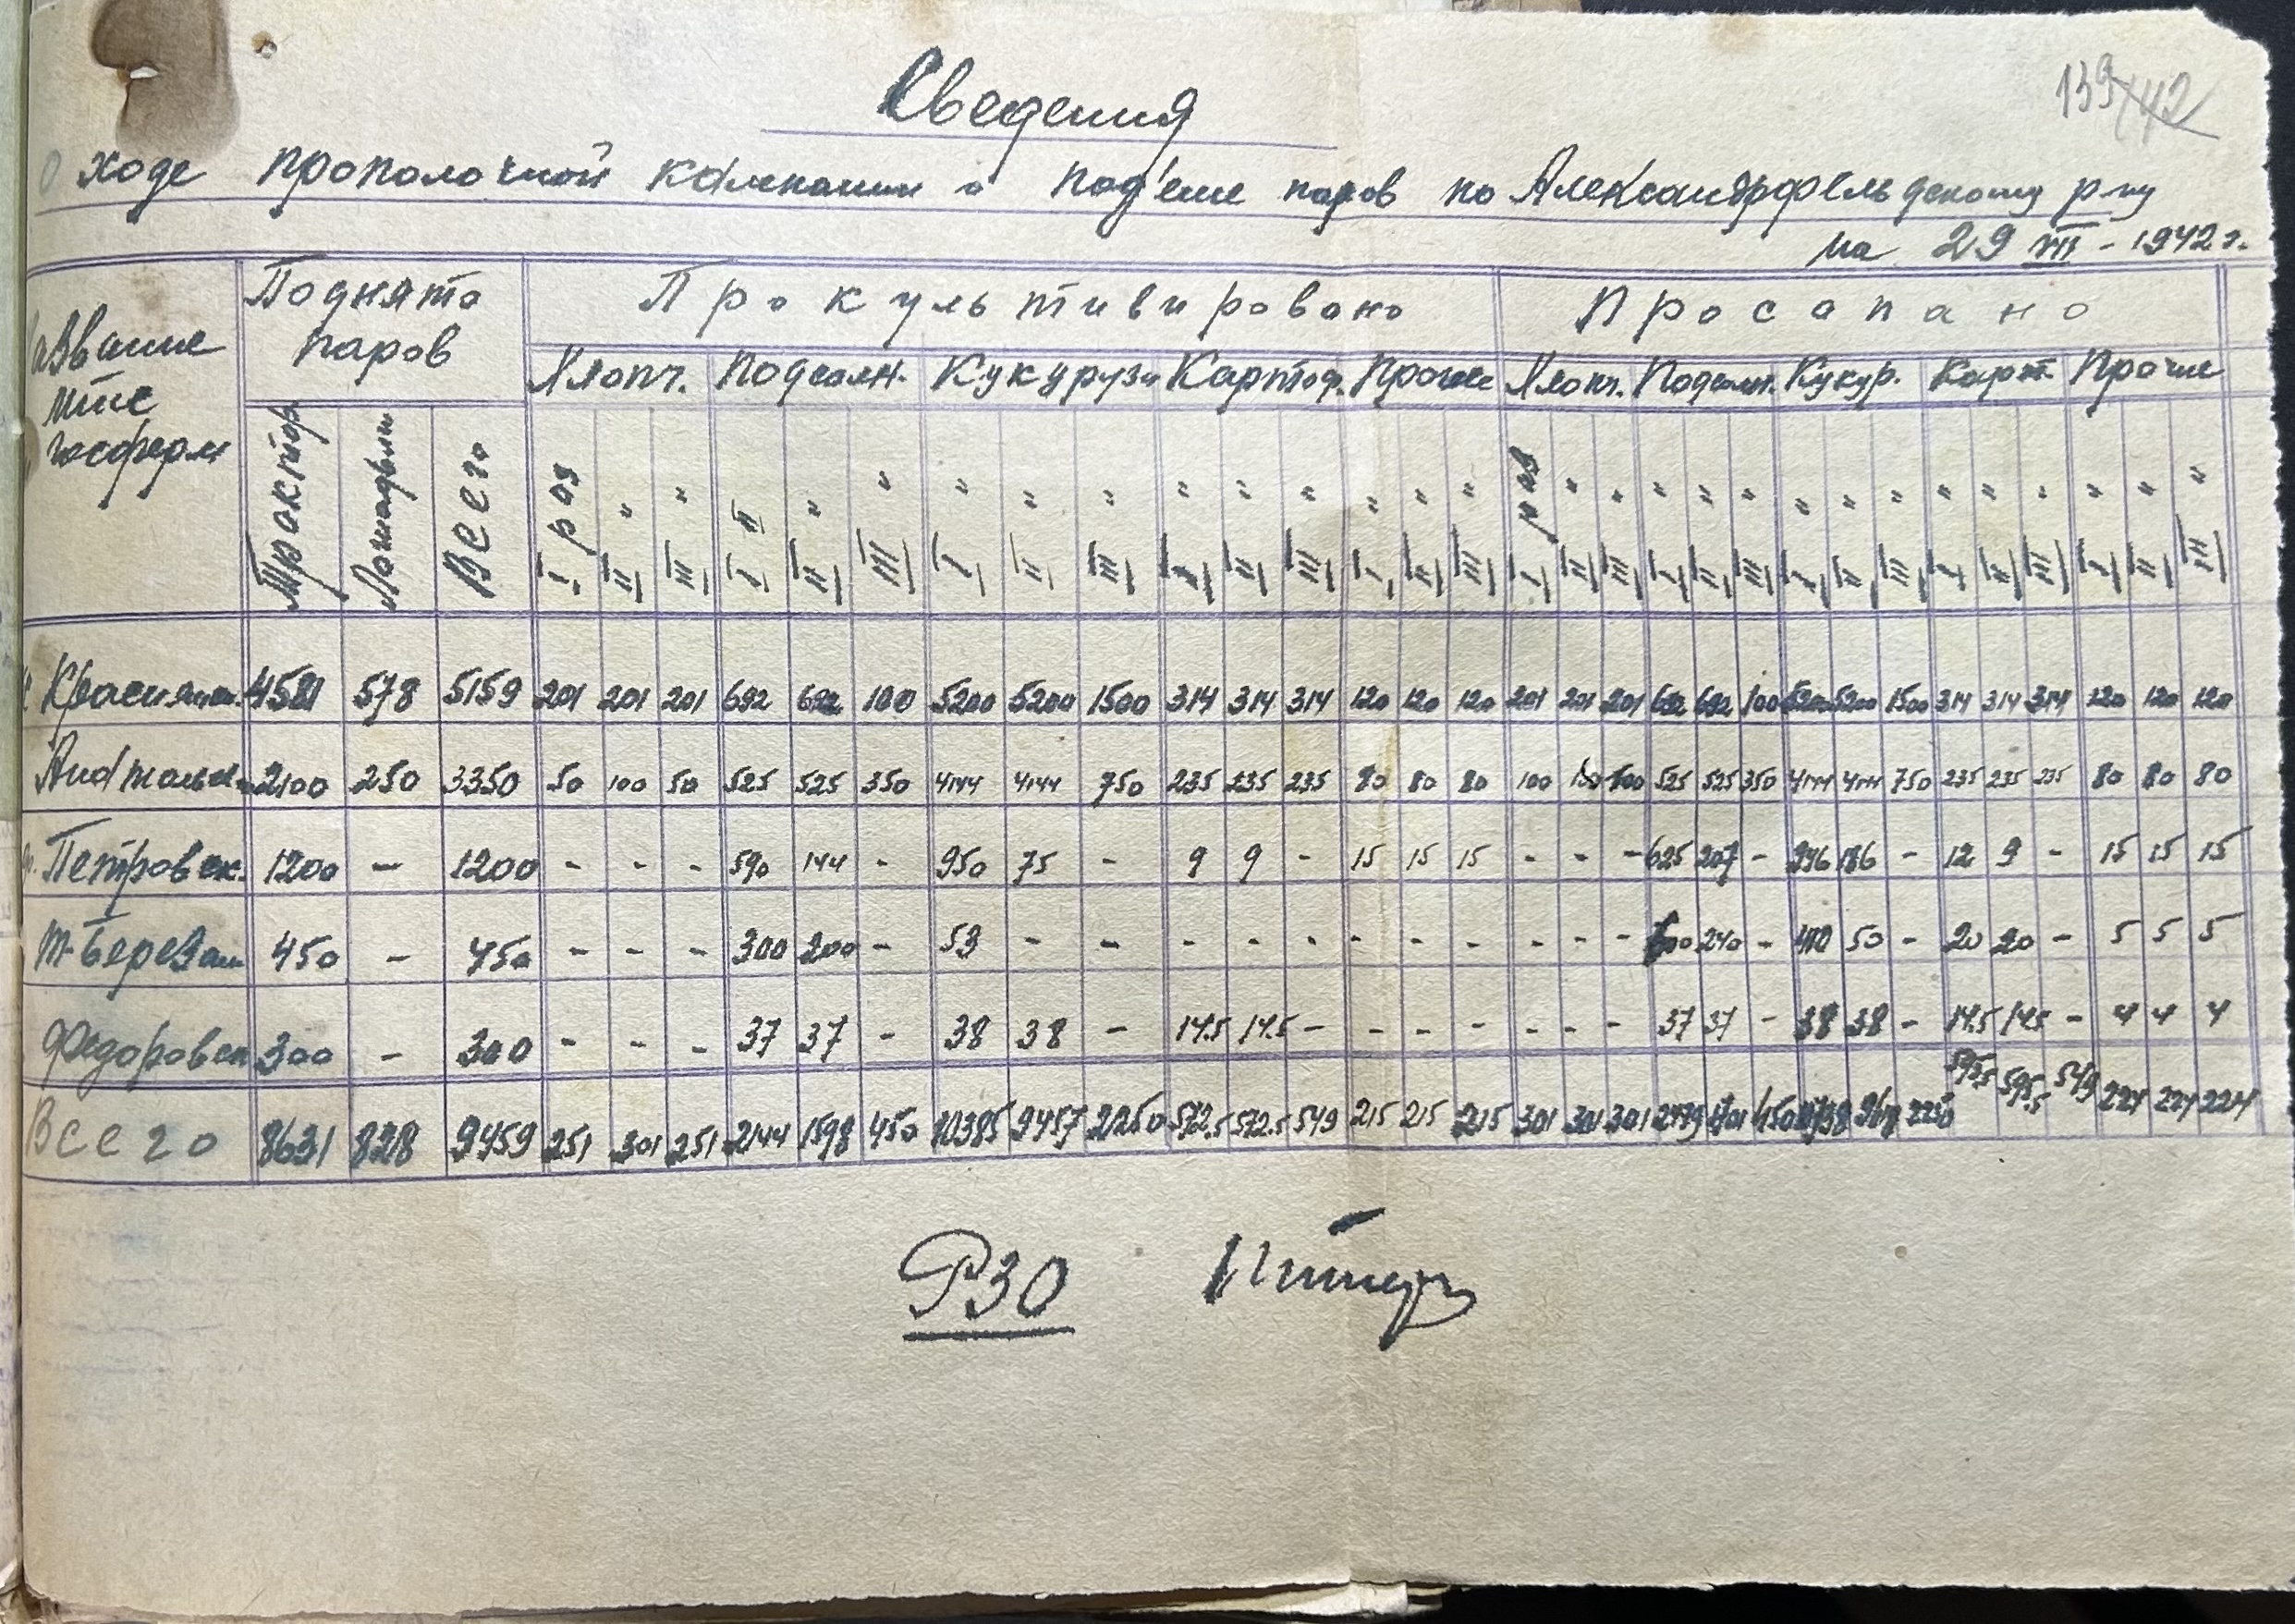 139 142
Сведения
О ходе прополочной кампании и под'еме паров по Александрфельдскому р-ну
на 29 VII - 1942 г.
Название мтс госферм | Поднято паров | Прокультивировано | Просапано
Хлопч. | Подсолн. | Кукурузы | Картоф. | Прочие | Хлопч. | Подсолн. | Кукур. | Карт. | Прочие
Трактор | Лошадьми | Всего | I раз | II " | III " | I " | II " | III " | I " | II " | III " | I " | II " | III " | I " | II " | III " | I раз | II " | III " | I " | II " | III " | I " | II " | III " | I " | II " | III " | I " | II " | III "
4581 578 5159 201 201 201 692 692 100 5200 5200 1500 314 314 314 120 120 120 201 201 201 692 692 100 5200 5200 1500 314 314 314 120 120 120
2100 250 3350 50 100 50 525 525 350 4144 4144 750 235 235 235 80 80 80 100 100 100 525 525 350 4144 4144 750 235 235 235 80 80 80
Петровск. 1200 - 1200 - - - 590 144 - 950 75 - 9 9 - 15 15 15 - - - 625 207 - 946 186 - 12 9 - 15 15 15
Т-Березан 450 - 450 - - - 300 200 - 53 - - - - - - - - - - - 600 240 - 410 50 - 20 20 - 5 5 5
Федоровск 300 - 300 - - - 37 37 - 38 38 - 14.5 14.5 - - - - - - - 37 37 - 38 38 - 14.5 14.5 - 4 4 4
Всего 8631 828 9459 251 301 251 2144 1598 450 10385 9457 2250 572.5 572.5 549 215 215 215 301 301 301 2479 1701 450 10738 9618 2250 595.5 595.5 549 224 224 224
РЗО